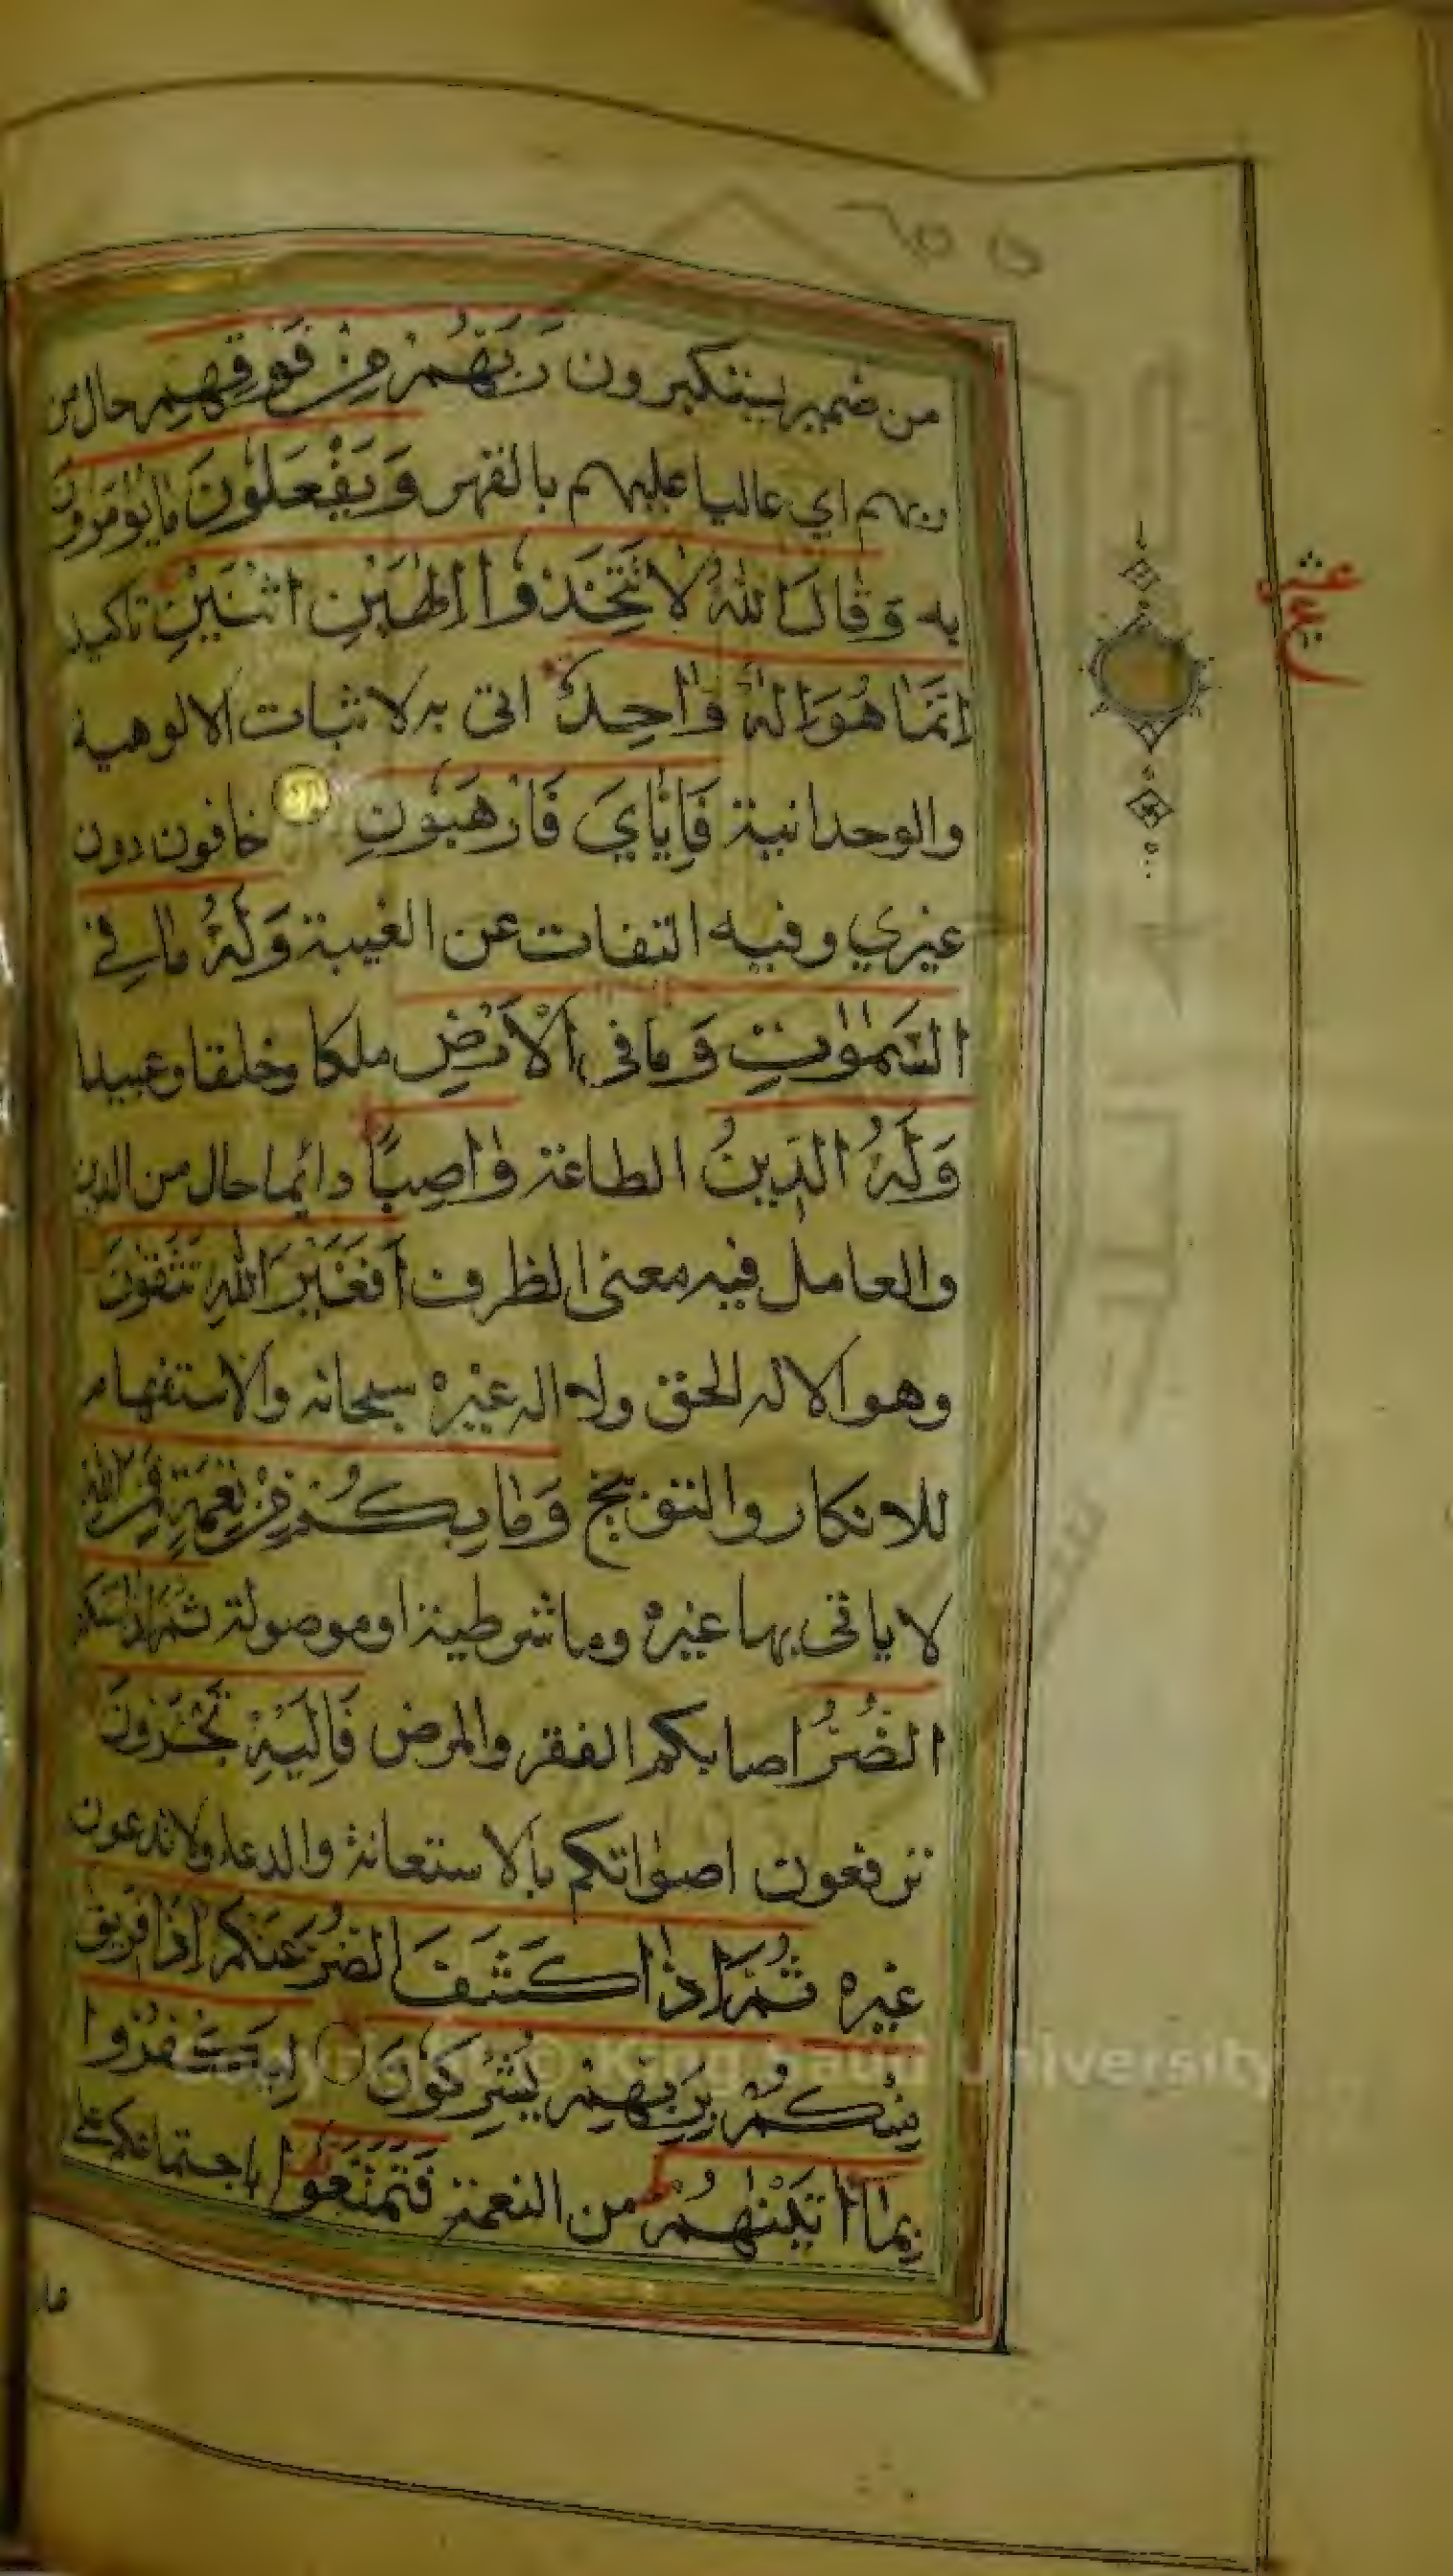 من ضمير يستكبرون رَبَّهُمْ مِنْ فَوْقِهِمْ حال من
ربهم اي عاليا عليهم بالقهر وَيَفْعَلُونَ مَا يُؤْمَرُونَ
به وَقَالَ اللّٰهُ لَا تَتَّخِذُوا اِلٰهَيْنِ اثْنَيْنِ تاكيد
اِنَّمَا هُوَ اِلٰهٌ وَاحِدٌ اتى به لاثبات الالوهية
والوحدانية فَاِيَّايَ فَارْهَبُونِ خافون دون
غيري وفيه التفات عن الغيبة وَلَهُ مَا فِي
السَّمٰوٰتِ وَمَا فِي الْاَرْضِ ملكا وخلقا وعبيدا
وَلَهُ الدِّينُ الطاعة وَاصِبًا دائما حال من الدين
والعامل فيه معنى الظرف اَفَغَيْرَ اللّٰهِ تَتَّقُونَ
وهو الاله الحق ولا اله غيره سبحانه والاستفهام
للانكار والتوبيخ وَمَا بِكُمْ مِنْ نِعْمَةٍ فَمِنَ اللّٰهِ
لا ياتى بها غيره وما شرطية او موصولة ثُمَّ اِذَا مَسَّكُمُ
الضُّرُّ اصابكم الفقر والمرض فَاِلَيْهِ تَجْئَرُونَ
ترفعون اصواتكم بالاستعانة والدعاء ولا تدعون
غيره ثُمَّ اِذَا كَشَفَ الضُّرَّ عَنْكُمْ اِذَا فَرِيقٌ
مِنْكُمْ بِرَبِّهِمْ يُشْرِكُونَ لِيَكْفُرُوا
بِمَا اٰتَيْنٰهُمْ من النعمة فَتَمَتَّعُوا باجتماعكم على
عشر
Copyright © King Saud University